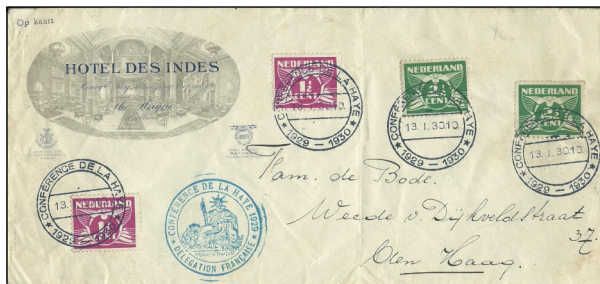 Op kaart
HOTEL DES INDES
The Hague
NEDERLAND
1½
CENT
CONFÉRENCE DE LA HAYE
1929 - 1930
NEDERLAND
2½
CENT
CONFÉRENCE DE LA HAYE
13.I.30.10.
1929 - 1930
NEDERLAND
2½
CENT
CONFÉRENCE DE LA HAYE
13.I.30.10.
1929 - 1930
CONFÉRENCE DE LA HAYE
13.
1929 - 1930
NEDERLAND
CENT
CONFÉRENCE DE LA HAYE 1929
DÉLÉGATION FRANÇAISE
Ham. de Bode.
Weede v. Dijkveldstraat
37.
Den Haag.